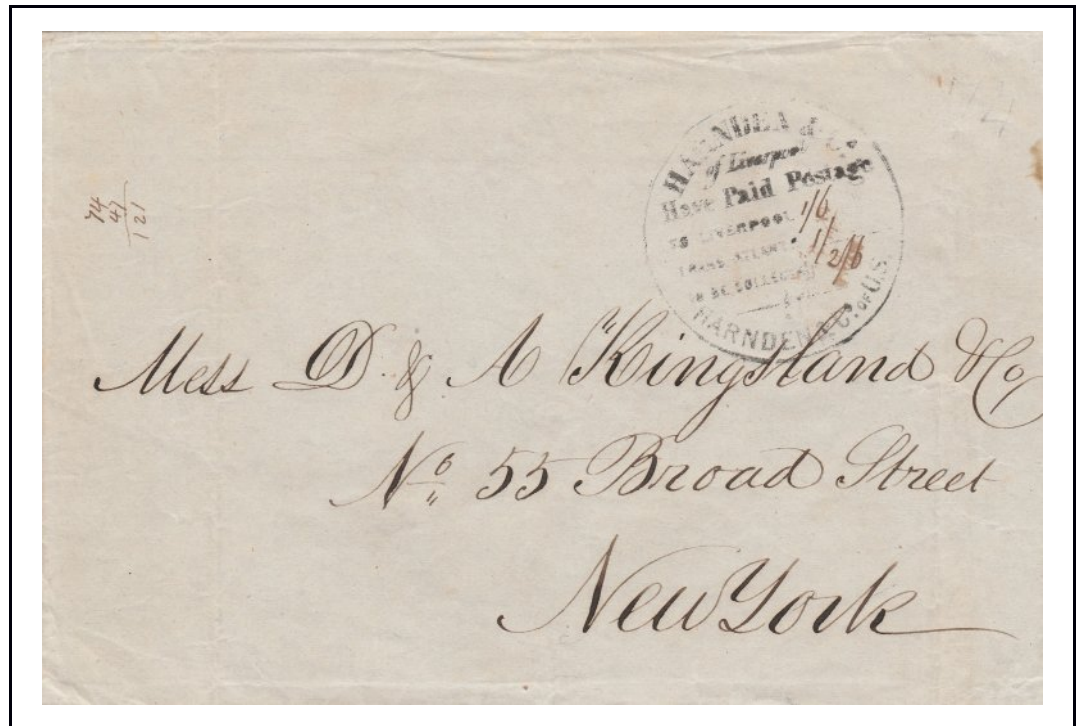 HARNDEN & Co.
of Liverpool
Have Paid Postage
TO LIVERPOOL 1/6
TRANS ATLANTIC 1/
TO BE COLLECTED 2/6
HARNDEN & Co. OF U.S.
74
47
121
Mess D. & A Kingsland & Co
No. 55 Broad Street
New York